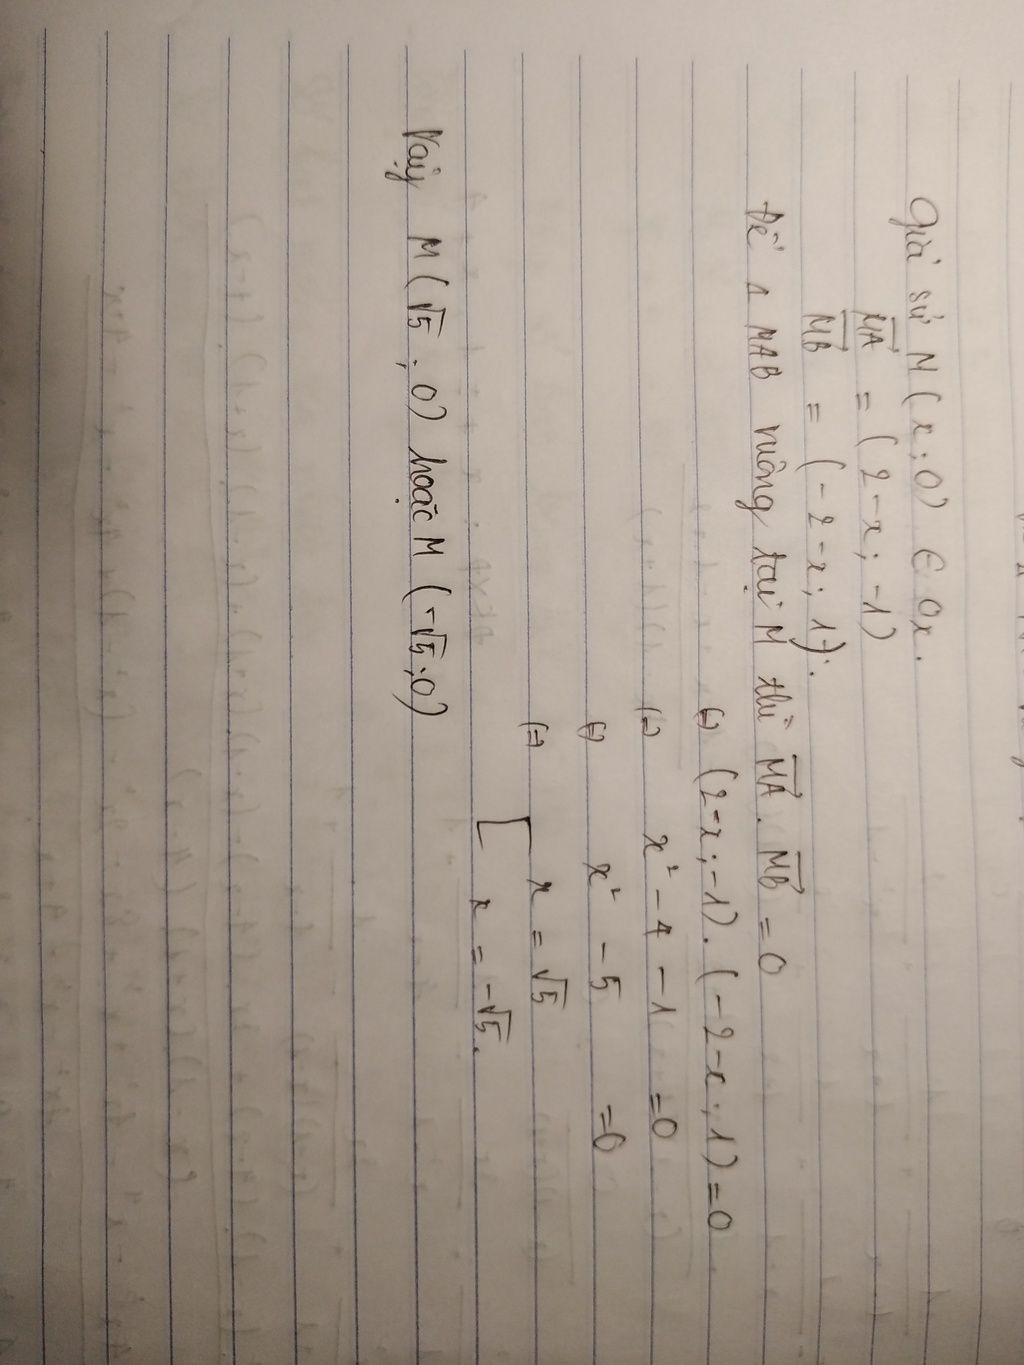 Giả sử M (x; 0) ∈ Ox.
MA = (2-x; -1)
MB = (-2-x; 1).
Để Δ MAB vuông tại M thì MA . MB = 0
(=) (2-x; -1). (-2-x; 1) = 0
(=) x² - 4 - 1 = 0
(=) x² - 5 = 0
(=) [ x = √5
x = -√5.
Vậy M (√5; 0) hoặc M (-√5; 0)